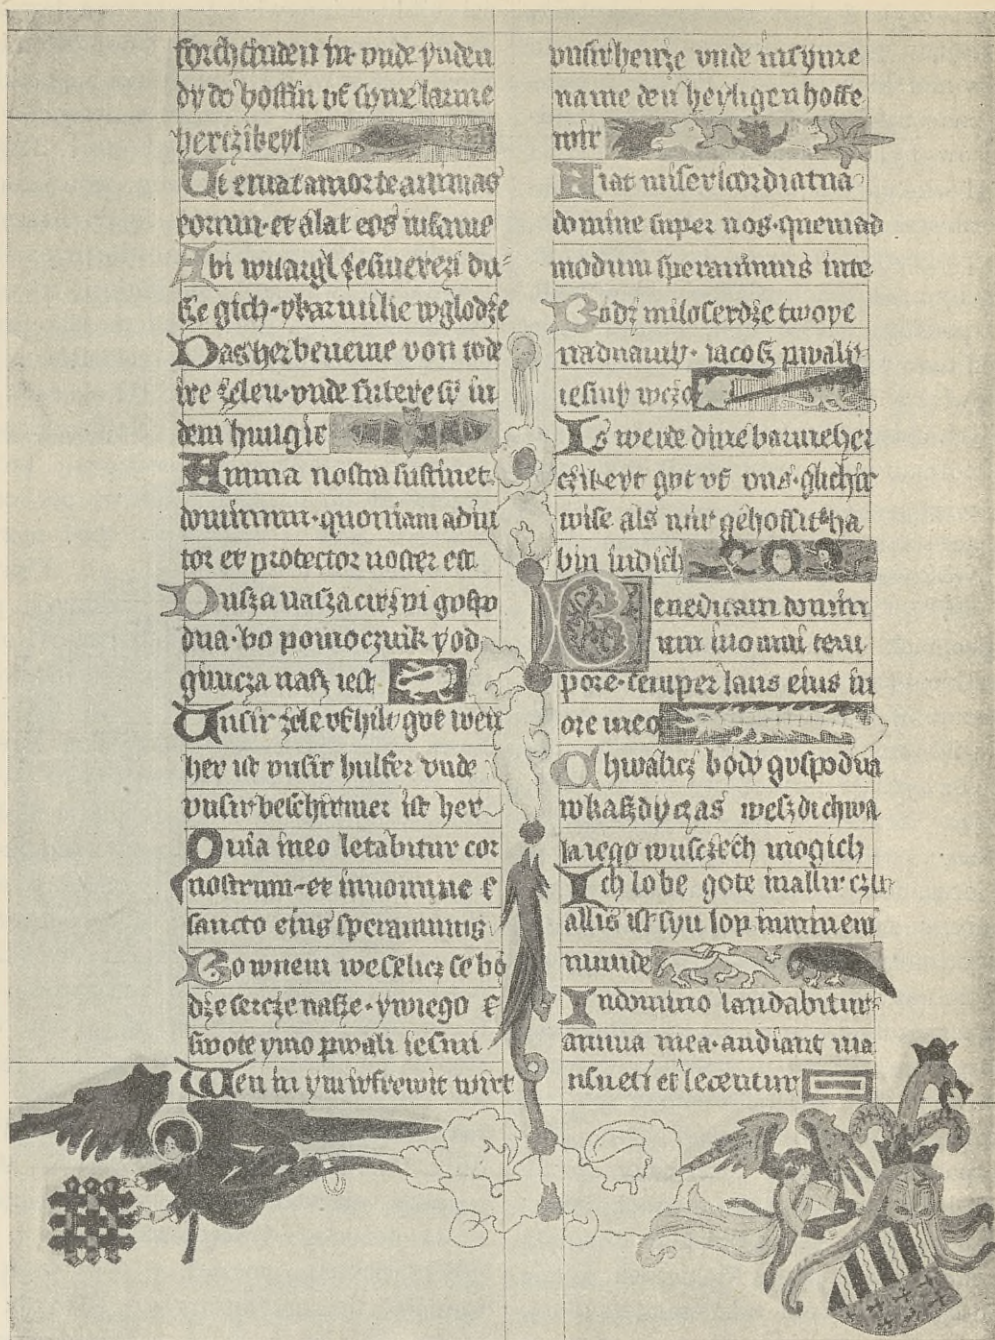 forchtinden in vnde ynden
dy do hoffin vf syne barme
herczikeyt
Ut eruat a morte animas
eorum · et alat eos in fame
Abi wiargl · du
sze gich · wglodze
Das her beneme von tode
ire zelen · vnde in
dem hungir
Anima nostra sustinet
dominum · quoniam adiu
tor et protector noster est
Dusza nasza gospo
dna · bo pomocznik y ob
nasz iest
Unsir zele wen
her ist vnsir hulfer vnde
vnsir beschirmer ist her
Quia in eo letabitur cor
nostrum · et in nomine
sancto eius sperauimus
Bo w nem weselicz se bo
dze sercze nasze · y w iego
swote ymo pwali iesmi
Wen in ym wirt
vnsir hercze vnde in syme
name den heyligen hoffe
wir
Fiat misericordia tua
domine super nos · quemad
modum sperauimus in te
Bodz miloserdze twoye
nad nami · iacosz pwaly
iesmy w cze
Is werde dine barmeher
czikeyt got vf vns · glichir
wise als wir gehoffit ha
bin in dich
Benedicam domin
um in omni tem
pore · semper laus eius in
ore meo
Chwalicz bodo gospodna
w kaszdy czas weszdi chwa
la iego w usczech mogich
Ich lobe gote in allir czit
allis ist syn lop in minem
munde
In domino laudabitur
anima mea · audiant ma
nsueti et letentur